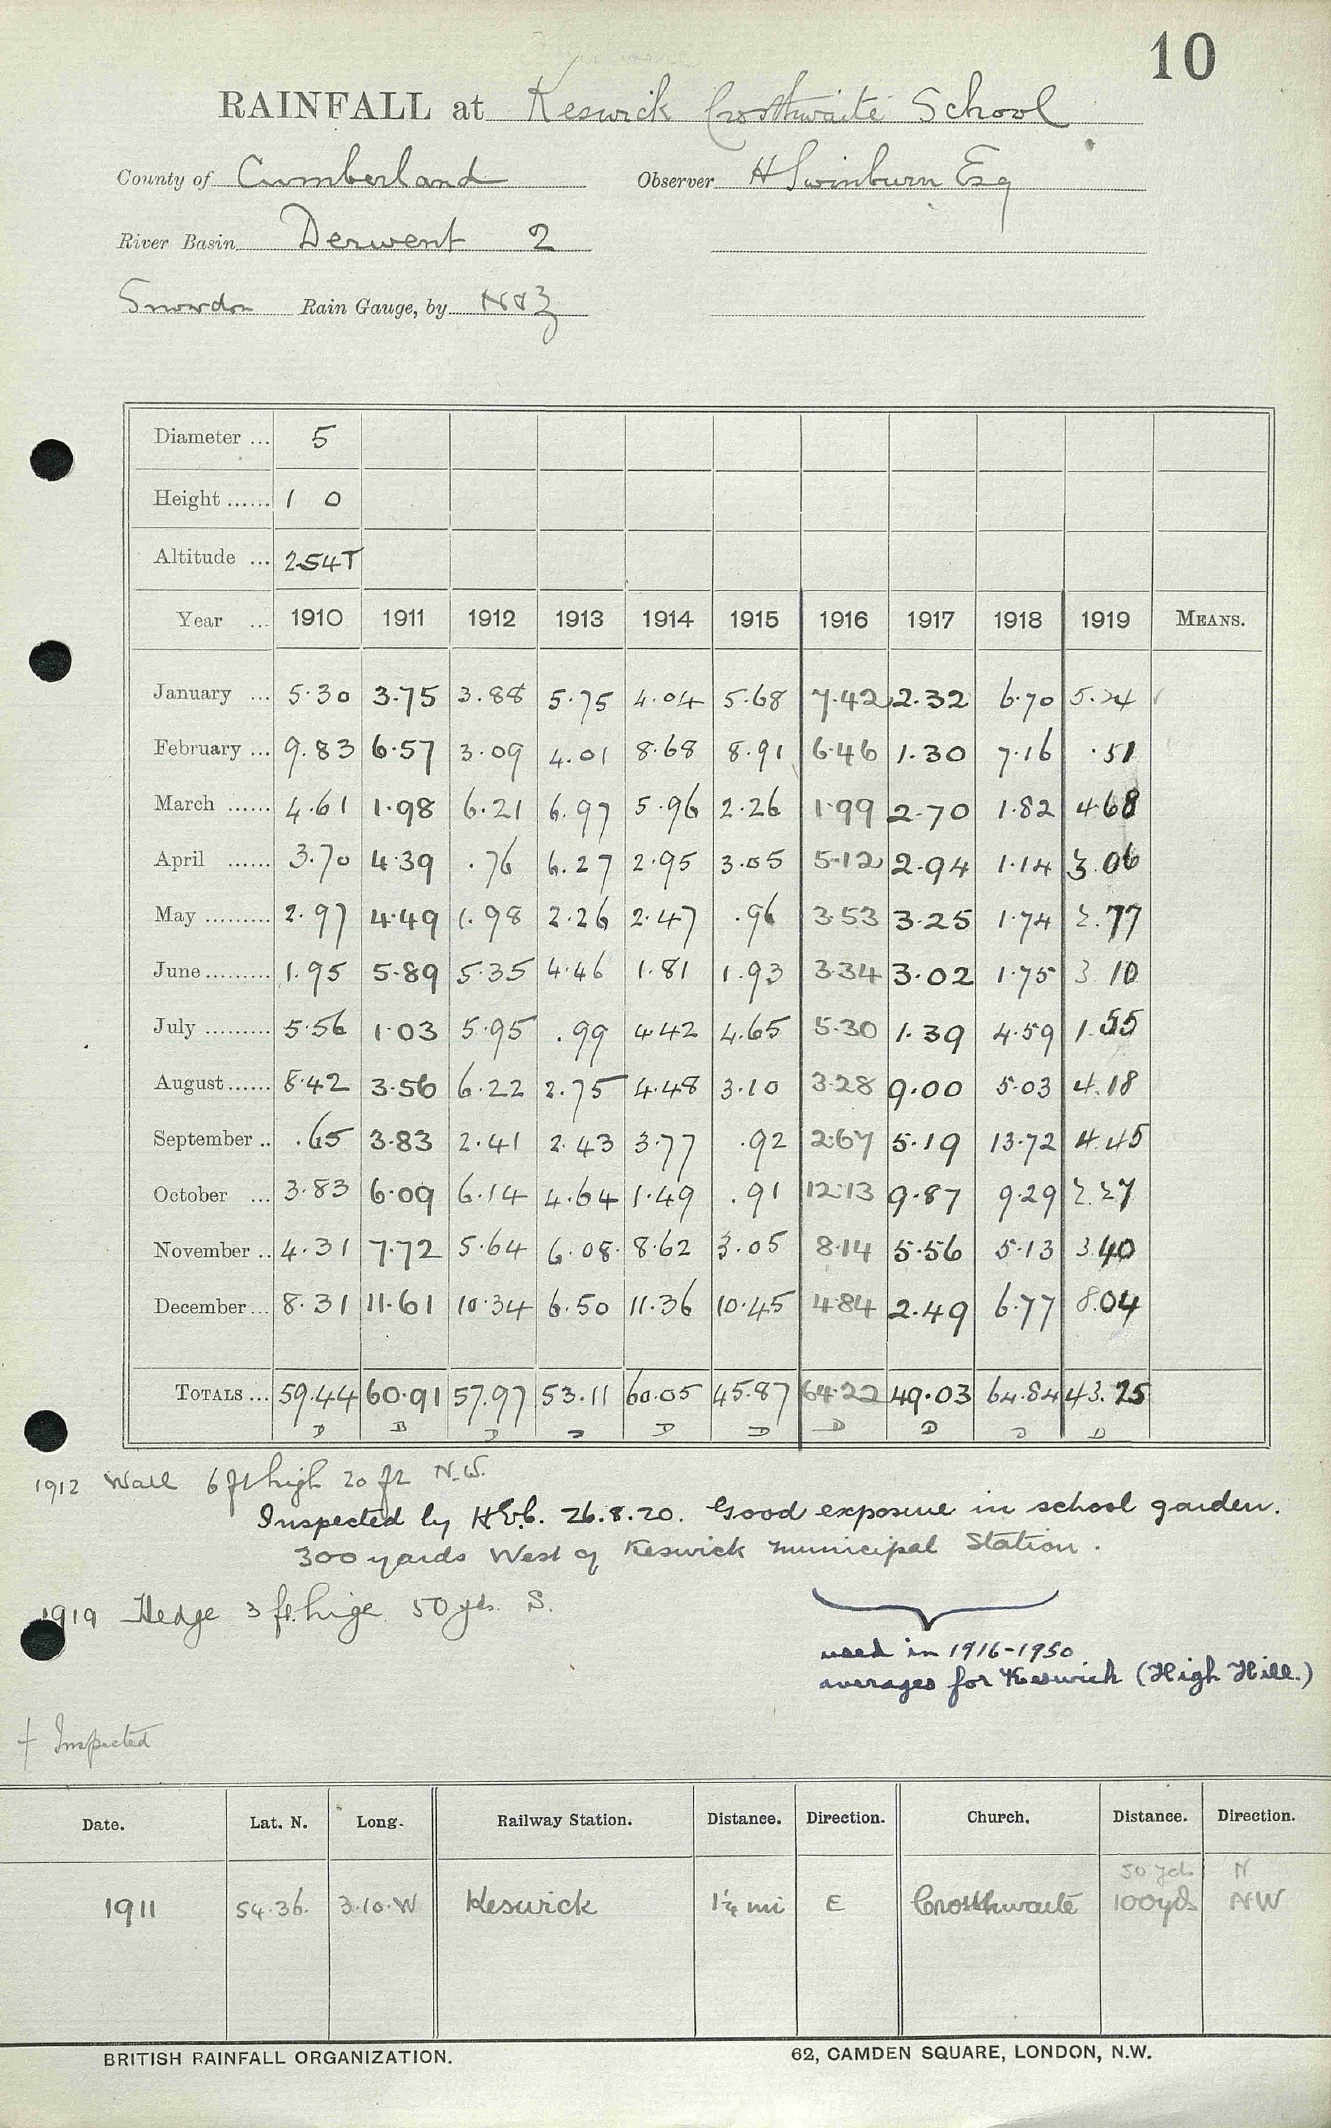 10
RAINFALL at Keswick Crosthwaite School
County of Cumberland Observer H Swinburn Esq
River Basin Derwent 2
Snowdon Rain Gauge, by N&Z
Diameter ... 5
Height ...... 1 0
Altitude ... 254T
Year ... 1910 1911 1912 1913 1914 1915 1916 1917 1918 1919 MEANS.
January ... 5.30 3.75 3.88 5.75 4.04 5.68 7.42 2.32 6.70 5.24
February ... 9.83 6.57 3.09 4.01 8.68 8.91 6.46 1.30 7.16 .51
March ...... 4.61 1.98 6.21 6.97 5.96 2.26 1.99 2.70 1.82 4.68
April ...... 3.70 4.39 .76 6.27 2.95 3.05 5.12 2.94 1.14 3.06
May ......... 2.97 4.49 1.98 2.26 2.47 .96 3.53 3.25 1.74 2.77
June ......... 1.95 5.89 5.35 4.46 1.81 1.93 3.34 3.02 1.75 3.10
July ......... 5.56 1.03 5.95 .99 4.42 4.65 5.30 1.39 4.59 1.55
August ...... 8.42 3.56 6.22 2.75 4.48 3.10 3.28 9.00 5.03 4.18
September .. .65 3.83 2.41 2.43 3.77 .92 2.67 5.19 13.72 4.45
October ... 3.83 6.09 6.14 4.64 1.49 .91 12.13 9.87 9.29 2.27
November .. 4.31 7.72 5.64 6.08 8.62 3.05 8.14 5.56 5.13 3.40
December ... 8.31 11.61 10.34 6.50 11.36 10.45 4.84 2.49 6.77 8.04
TOTALS ... 59.44 60.91 57.97 53.11 60.05 45.87 64.22 49.03 64.84 43.25
D B D D D D D D D D
1912 Wall 6 ft high 20 ft N.W.
Inspected by 26.8.20. Good exposure in school garden.
300 yards West of Keswick Municipal Station.
1919 Hedge 3 ft. high 50 yds. S.
used in 1916-1950
averages for Keswick (High Hill.)
† Inspected
Date. Lat. N. Long. Railway Station. Distance. Direction. Church. Distance. Direction.
50 yds N
1911 54.36. 3.10.W Keswick 1¼ mi E Crosthwaite 100yds NW
BRITISH RAINFALL ORGANIZATION. 62, CAMDEN SQUARE, LONDON, N.W.